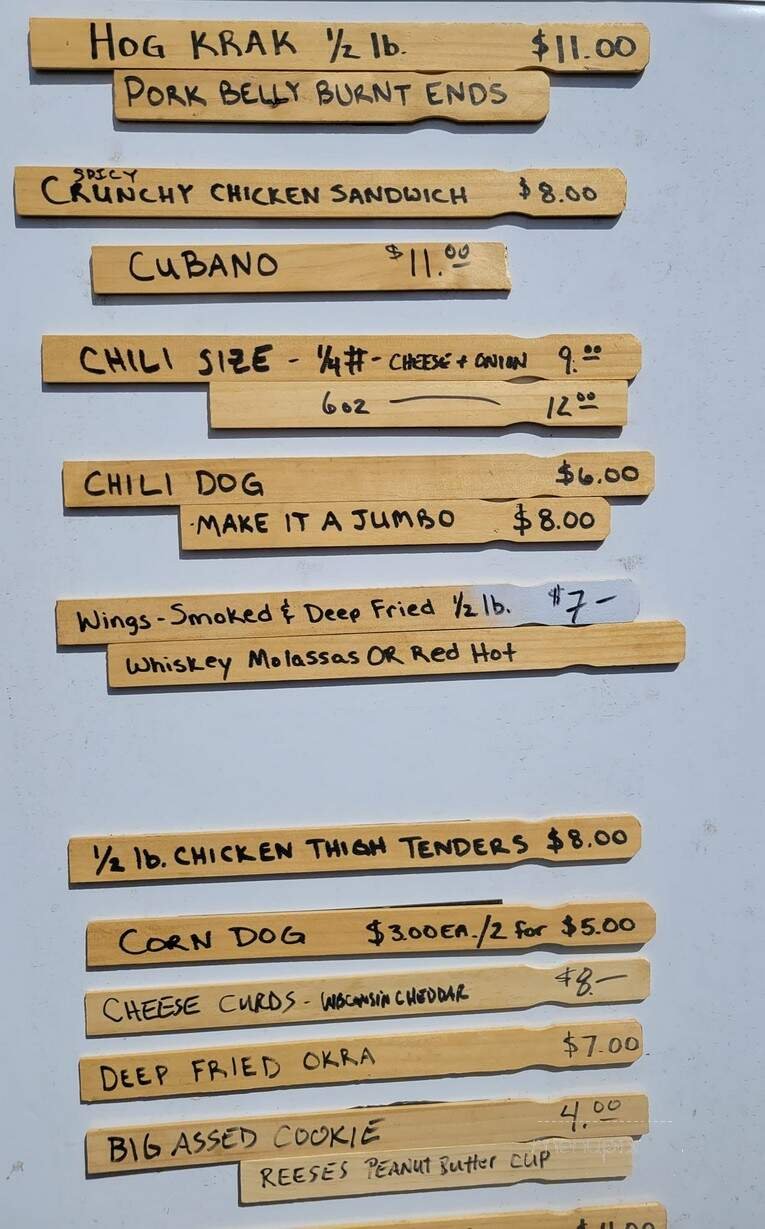 HOG KRAK ½ lb. $11.00
PORK BELLY BURNT ENDS
SPICY
CRUNCHY CHICKEN SANDWICH $8.00
CUBANO $11.00
CHILI SIZE - ¼# - CHEESE + ONION 9.00
6oz — 12.00
CHILI DOG $6.00
-MAKE IT A JUMBO $8.00
Wings - Smoked & Deep Fried ½ lb. $7-
Whiskey Molassas OR Red Hot
½ lb. CHICKEN THIGH TENDERS $8.00
CORN DOG $3.00EA./2 for $5.00
CHEESE CURDS - WISCONSIN CHEDDAR $8.-
DEEP FRIED OKRA $7.00
BIG ASSED COOKIE 4.00
REESES PEANUT Butter CUP